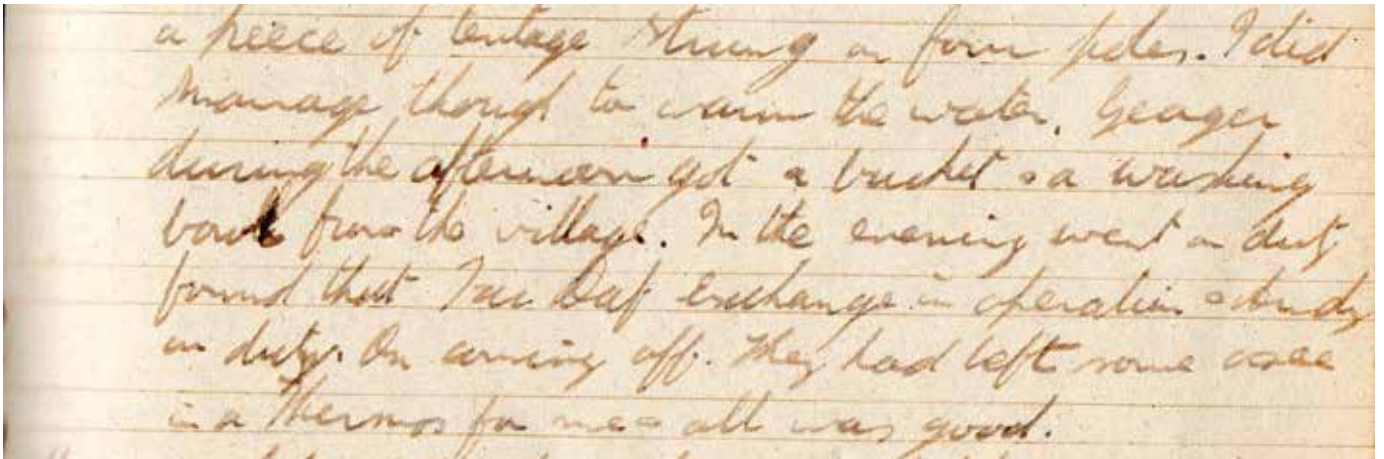 a peece of tentage strung on four poles. I did
manage though to warm the water. Geager
during the afternoon got a bucket & a washing
bowl from the village. In the evening went on duty
found that Tac Def exchange in operation & Andy
on duty. On coming off. They had left some
in a thermos for me & all was good.